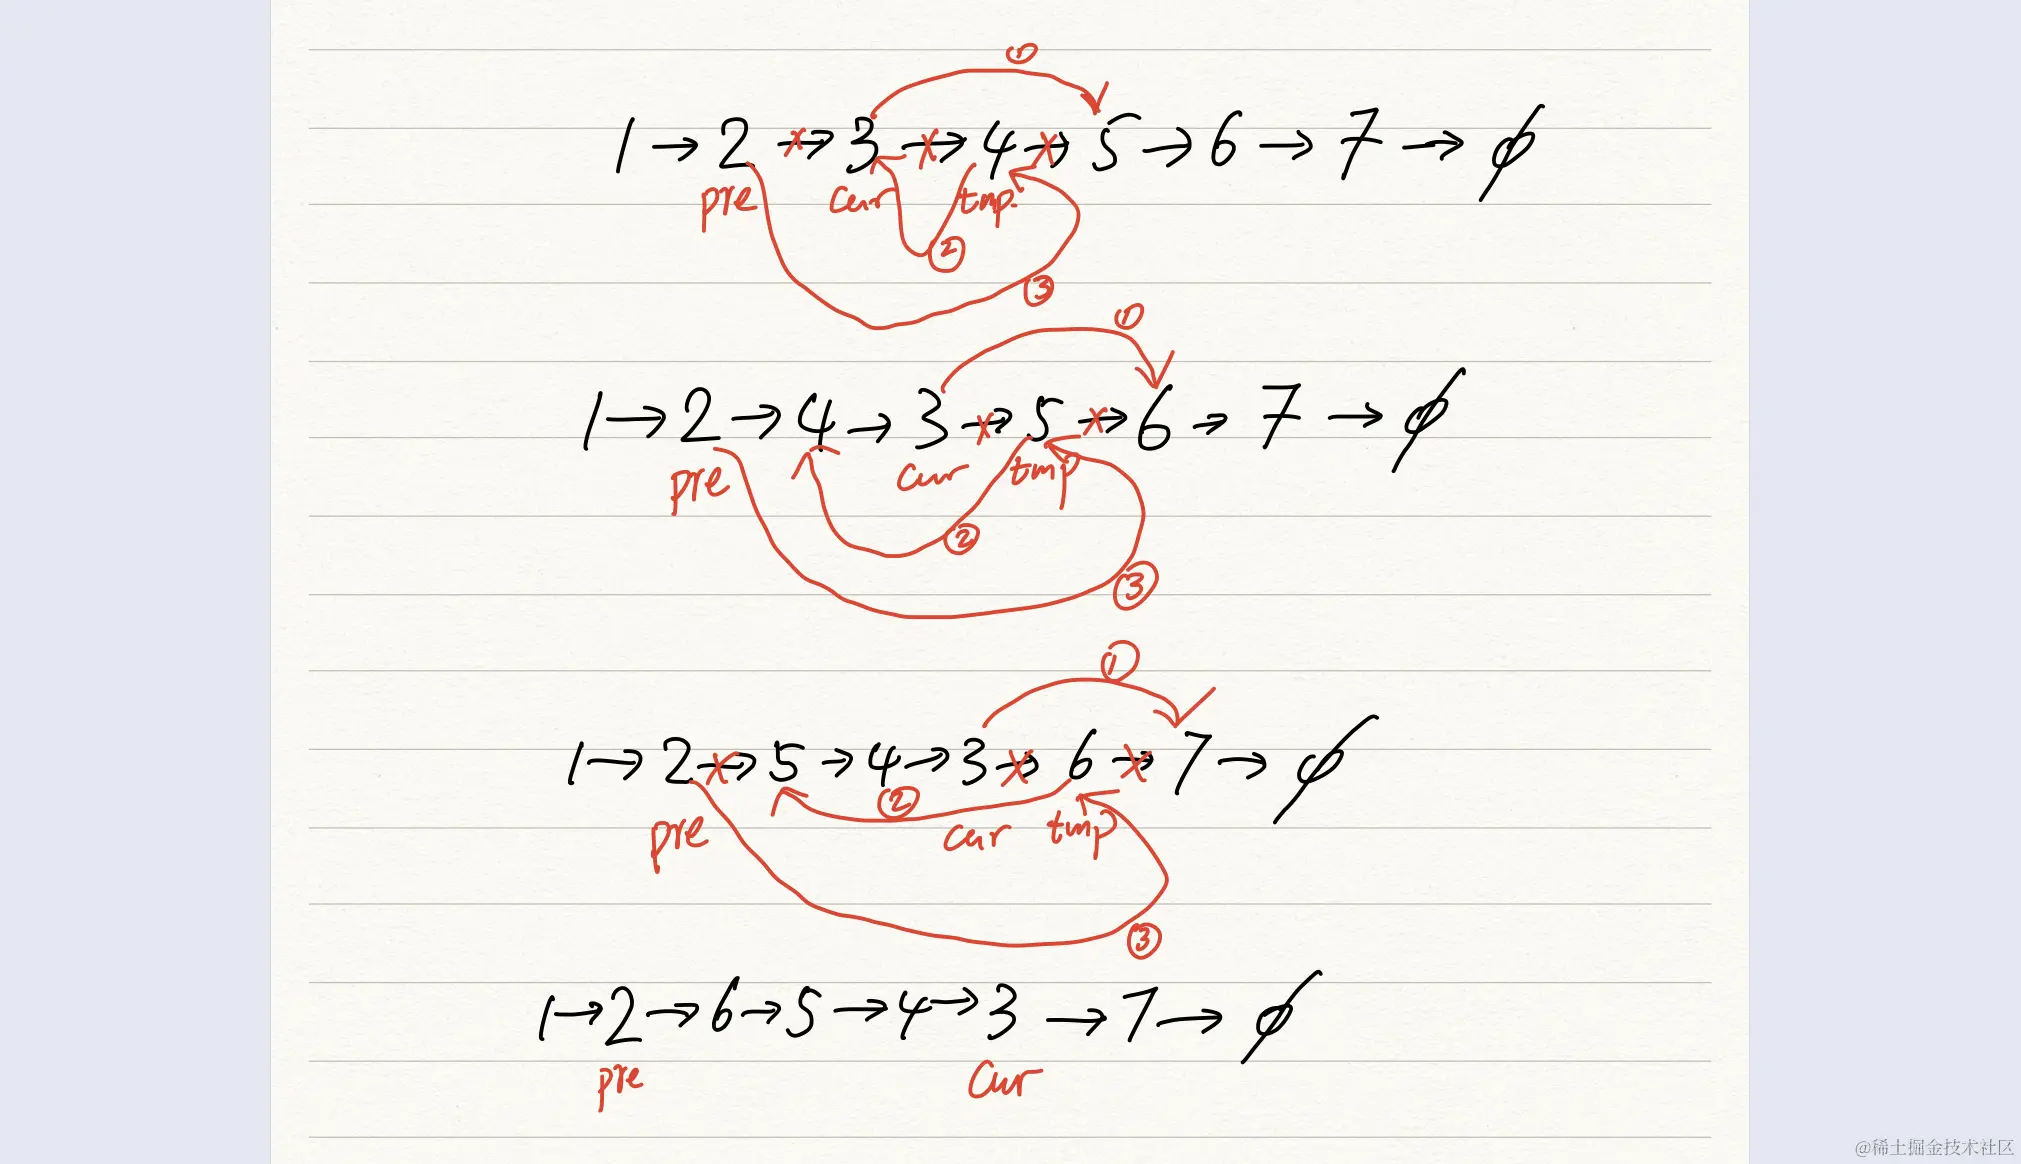 ①
1 → 2 → 3 → 4 → 5 → 6 → 7 → ϕ
pre cur tmp
②
③
①
1 → 2 → 4 → 3 → 5 → 6 → 7 → ϕ
pre cur tmp
②
③
①
1 → 2 → 5 → 4 → 3 → 6 → 7 → ϕ
②
pre cur tmp
③
1 → 2 → 6 → 5 → 4 → 3 → 7 → ϕ
pre cur
@稀土掘金技术社区